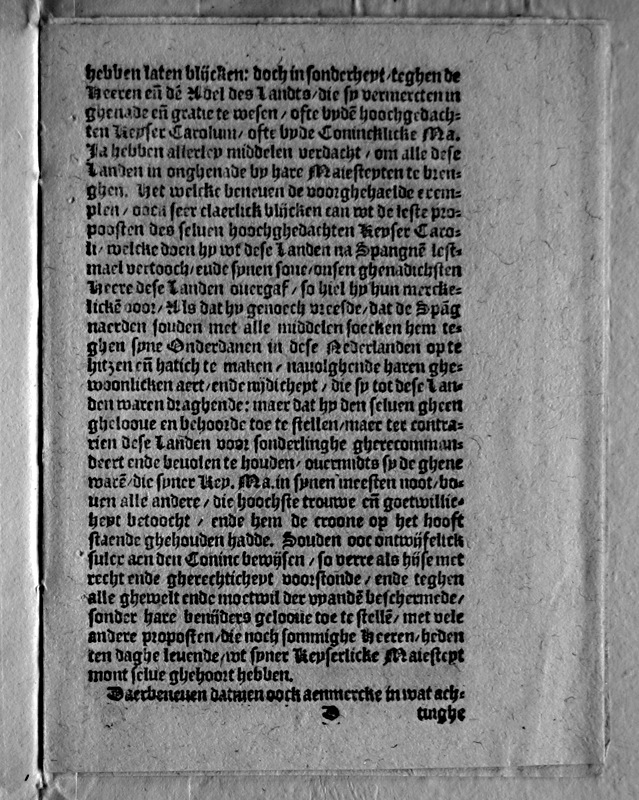 hebben laten blijcken: doch in sonderheyt / teghen de
Heeren eñ dē Adel des Landts / die sy vermercten in
ghenade eñ gratie te wesen / ofte byden hoochgedach-
ten Keyser Carolum / ofte by de Conincklicke Ma.
Ja hebben allerley middelen verdacht / om alle dese
Landen in onghenade by hare Maiesteyten te bren-
ghen. Het welcke beneuen de voorghehaelde exem-
plen / oock seer claerlick blijcken can wt de leste pro-
poosten des seluen hoochghedachten Keyser Caro-
li / welcke doen hy wt dese Landen na Spangnē lest-
mael vertooch / ende synen sone / onsen ghenadichsten
Heere dese Landen ouergaf / so hiel hy hun mercke-
lickē voor / Als dat hy genoech vreesde / dat de Spāg
naerden souden met alle middelen soecken hem te-
ghen syne Onderdanen in dese Nederlanden op te
hitzen eñ hatich te maken / nauolghende haren ghe-
woonlicken aert / ende nijdicheyt / die sy tot dese Lan-
den waren draghende: maer dat hy den seluen gheen
ghelooue en behoorde toe te stellen / maer ter contra-
rien dese Landen voor sonderlinghe gherecomman-
deert ende beuolen te houden / ouermidts sy de ghene
warē / die syner Key. Ma. in synen meesten noot / bo-
uen alle andere / die hoochste trouwe eñ goetwillic-
heyt betoocht / ende hem de croone op het hooft
staende ghehouden hadde. Souden ooc ontwijfelick
sulcx aen den Coninc bewijsen / so verre als hijse met
recht ende gherechticheyt voorstonde / ende teghen
alle ghewelt ende moetwil der vyandē beschermede /
sonder hare benijders gelooue toe te stellē / met vele
andere proposten / die noch sommighe Heeren / heden
ten daghe leuende / wt syner Keyserlicke Maiesteyt
mont selue ghehoort hebben.
Daerbeneuen datmen oock aenmercke in wat ach-
D tinghe